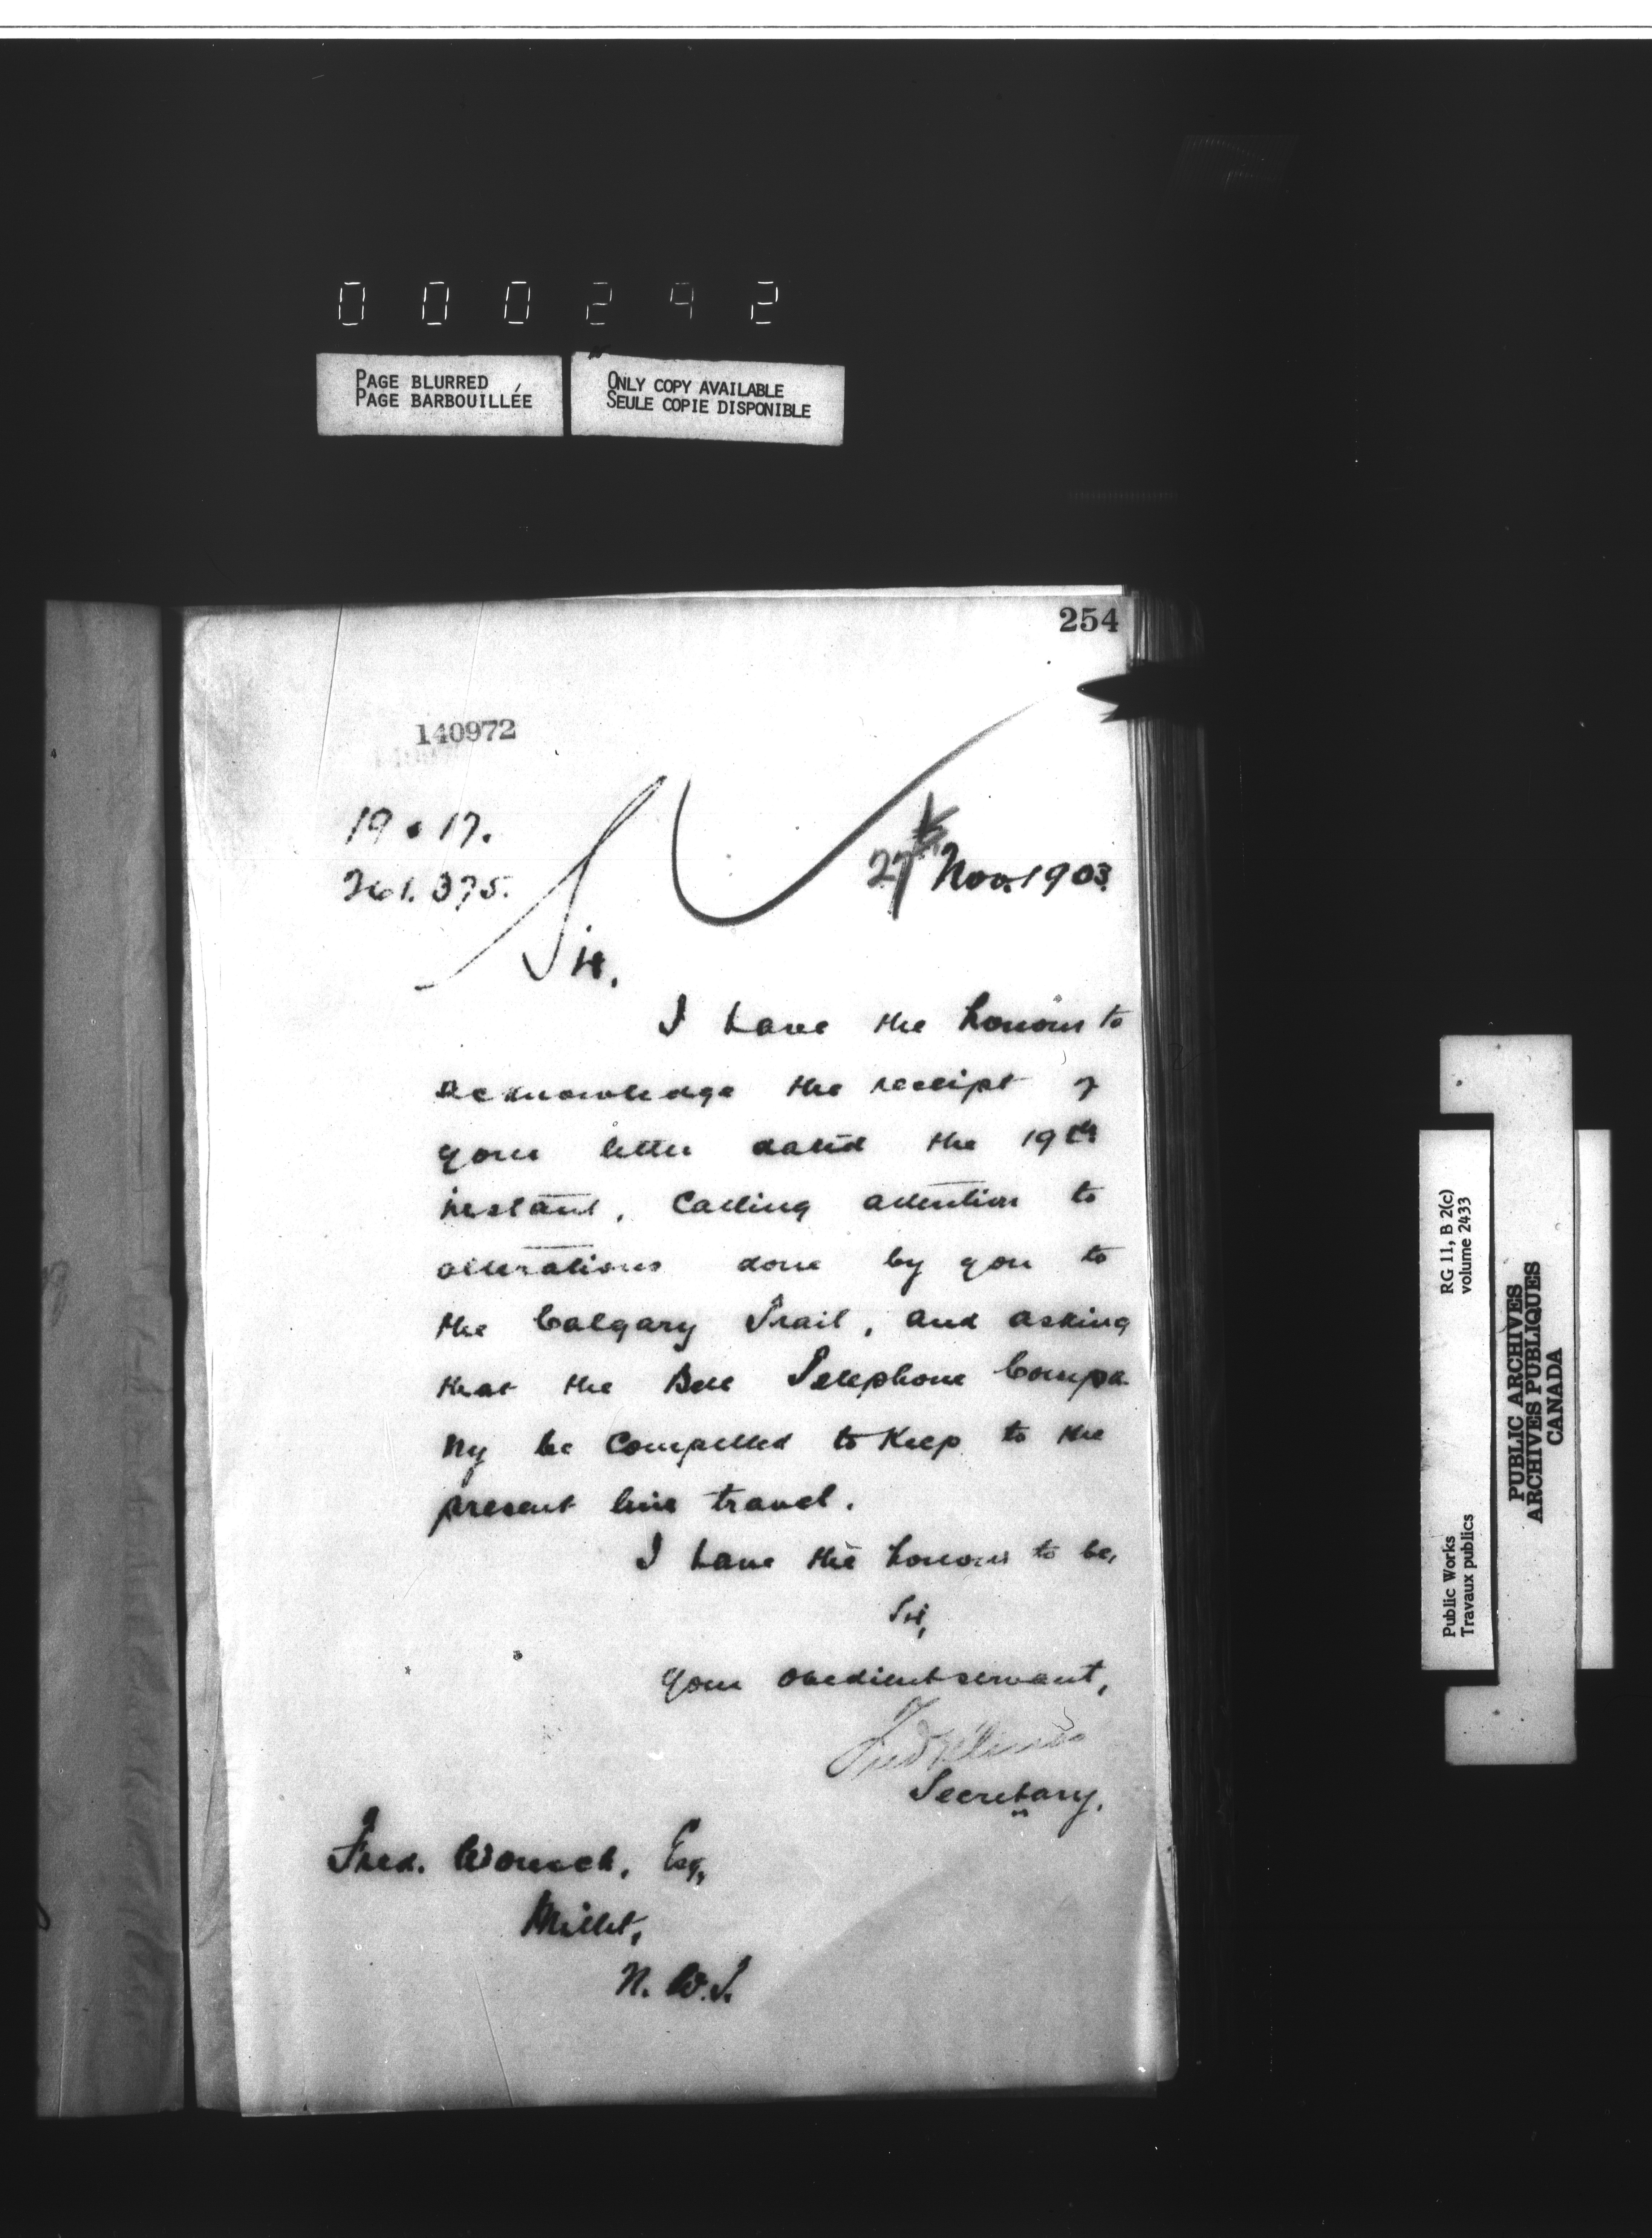 000292
PAGE BLURRED
PAGE BARBOUILLÉE
ONLY COPY AVAILABLE
SEULE COPIE DISPONIBLE
254
140972
19 . 17.
261.375.
27th Nov. 1903.
Sir,
I have the honour to
acknowledge the receipt of
your letter dated the 19th
instant, Calling attention to
alterations done by you to
the Calgary Trail, and asking
that the Bell Telephone Compa-
ny be Compelled to Keep to the
present line travel.
I have the honour to be,
Sir,
Your obedient servant,
Secretary.
Fred. Esq,
Millet,
N. W. T.
Public Works
Travaux publics
RG 11, B 2(c)
volume 2433
PUBLIC ARCHIVES
ARCHIVES PUBLIQUES
CANADA